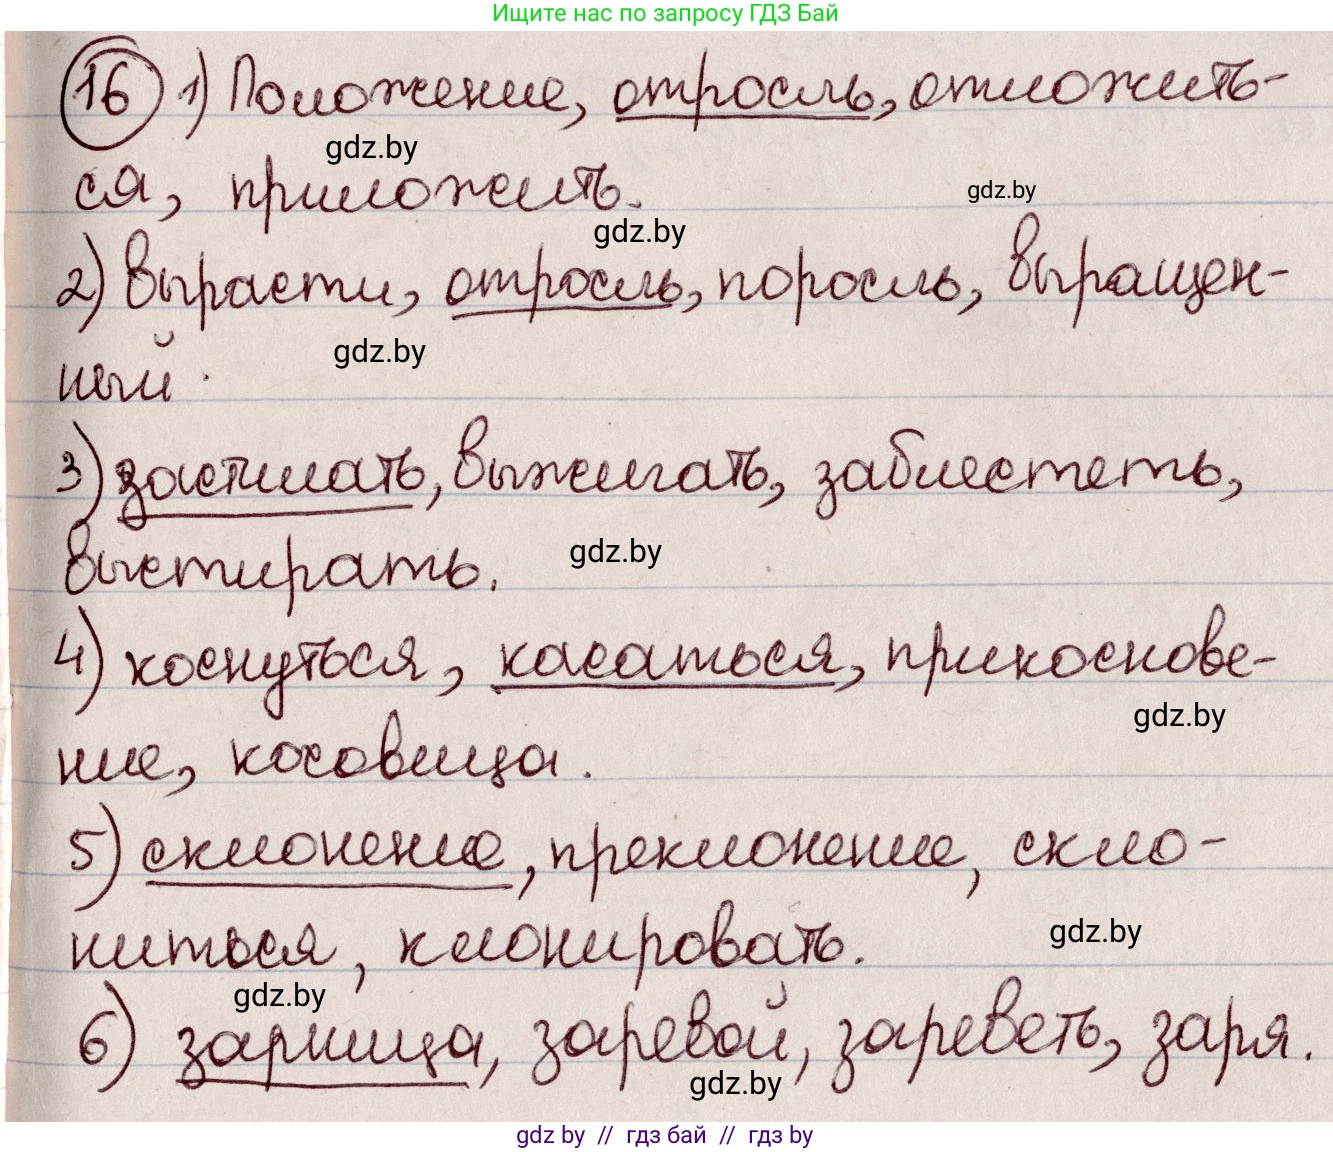 Ищите нас по запросу ГДЗ Бай
16 1) Положение, отросль, отложить-
gdz.by
ся, приложить.
gdz.by
gdz.by
2) вырасти, отросль, поросль, выращен-
gdz.by
ный.
3) застилать, выжигать, заблестеть,
выстирать.
gdz.by
4) коснуться, касаться, прикоснове-
gdz.by
ние, косовица.
5) склонение, преклонение, скло-
ниться, клонировать.
gdz.by
gdz.by
6) зарница, заревой, зареветь, заря.
gdz.by
gdz by // гдз бай // гдз by